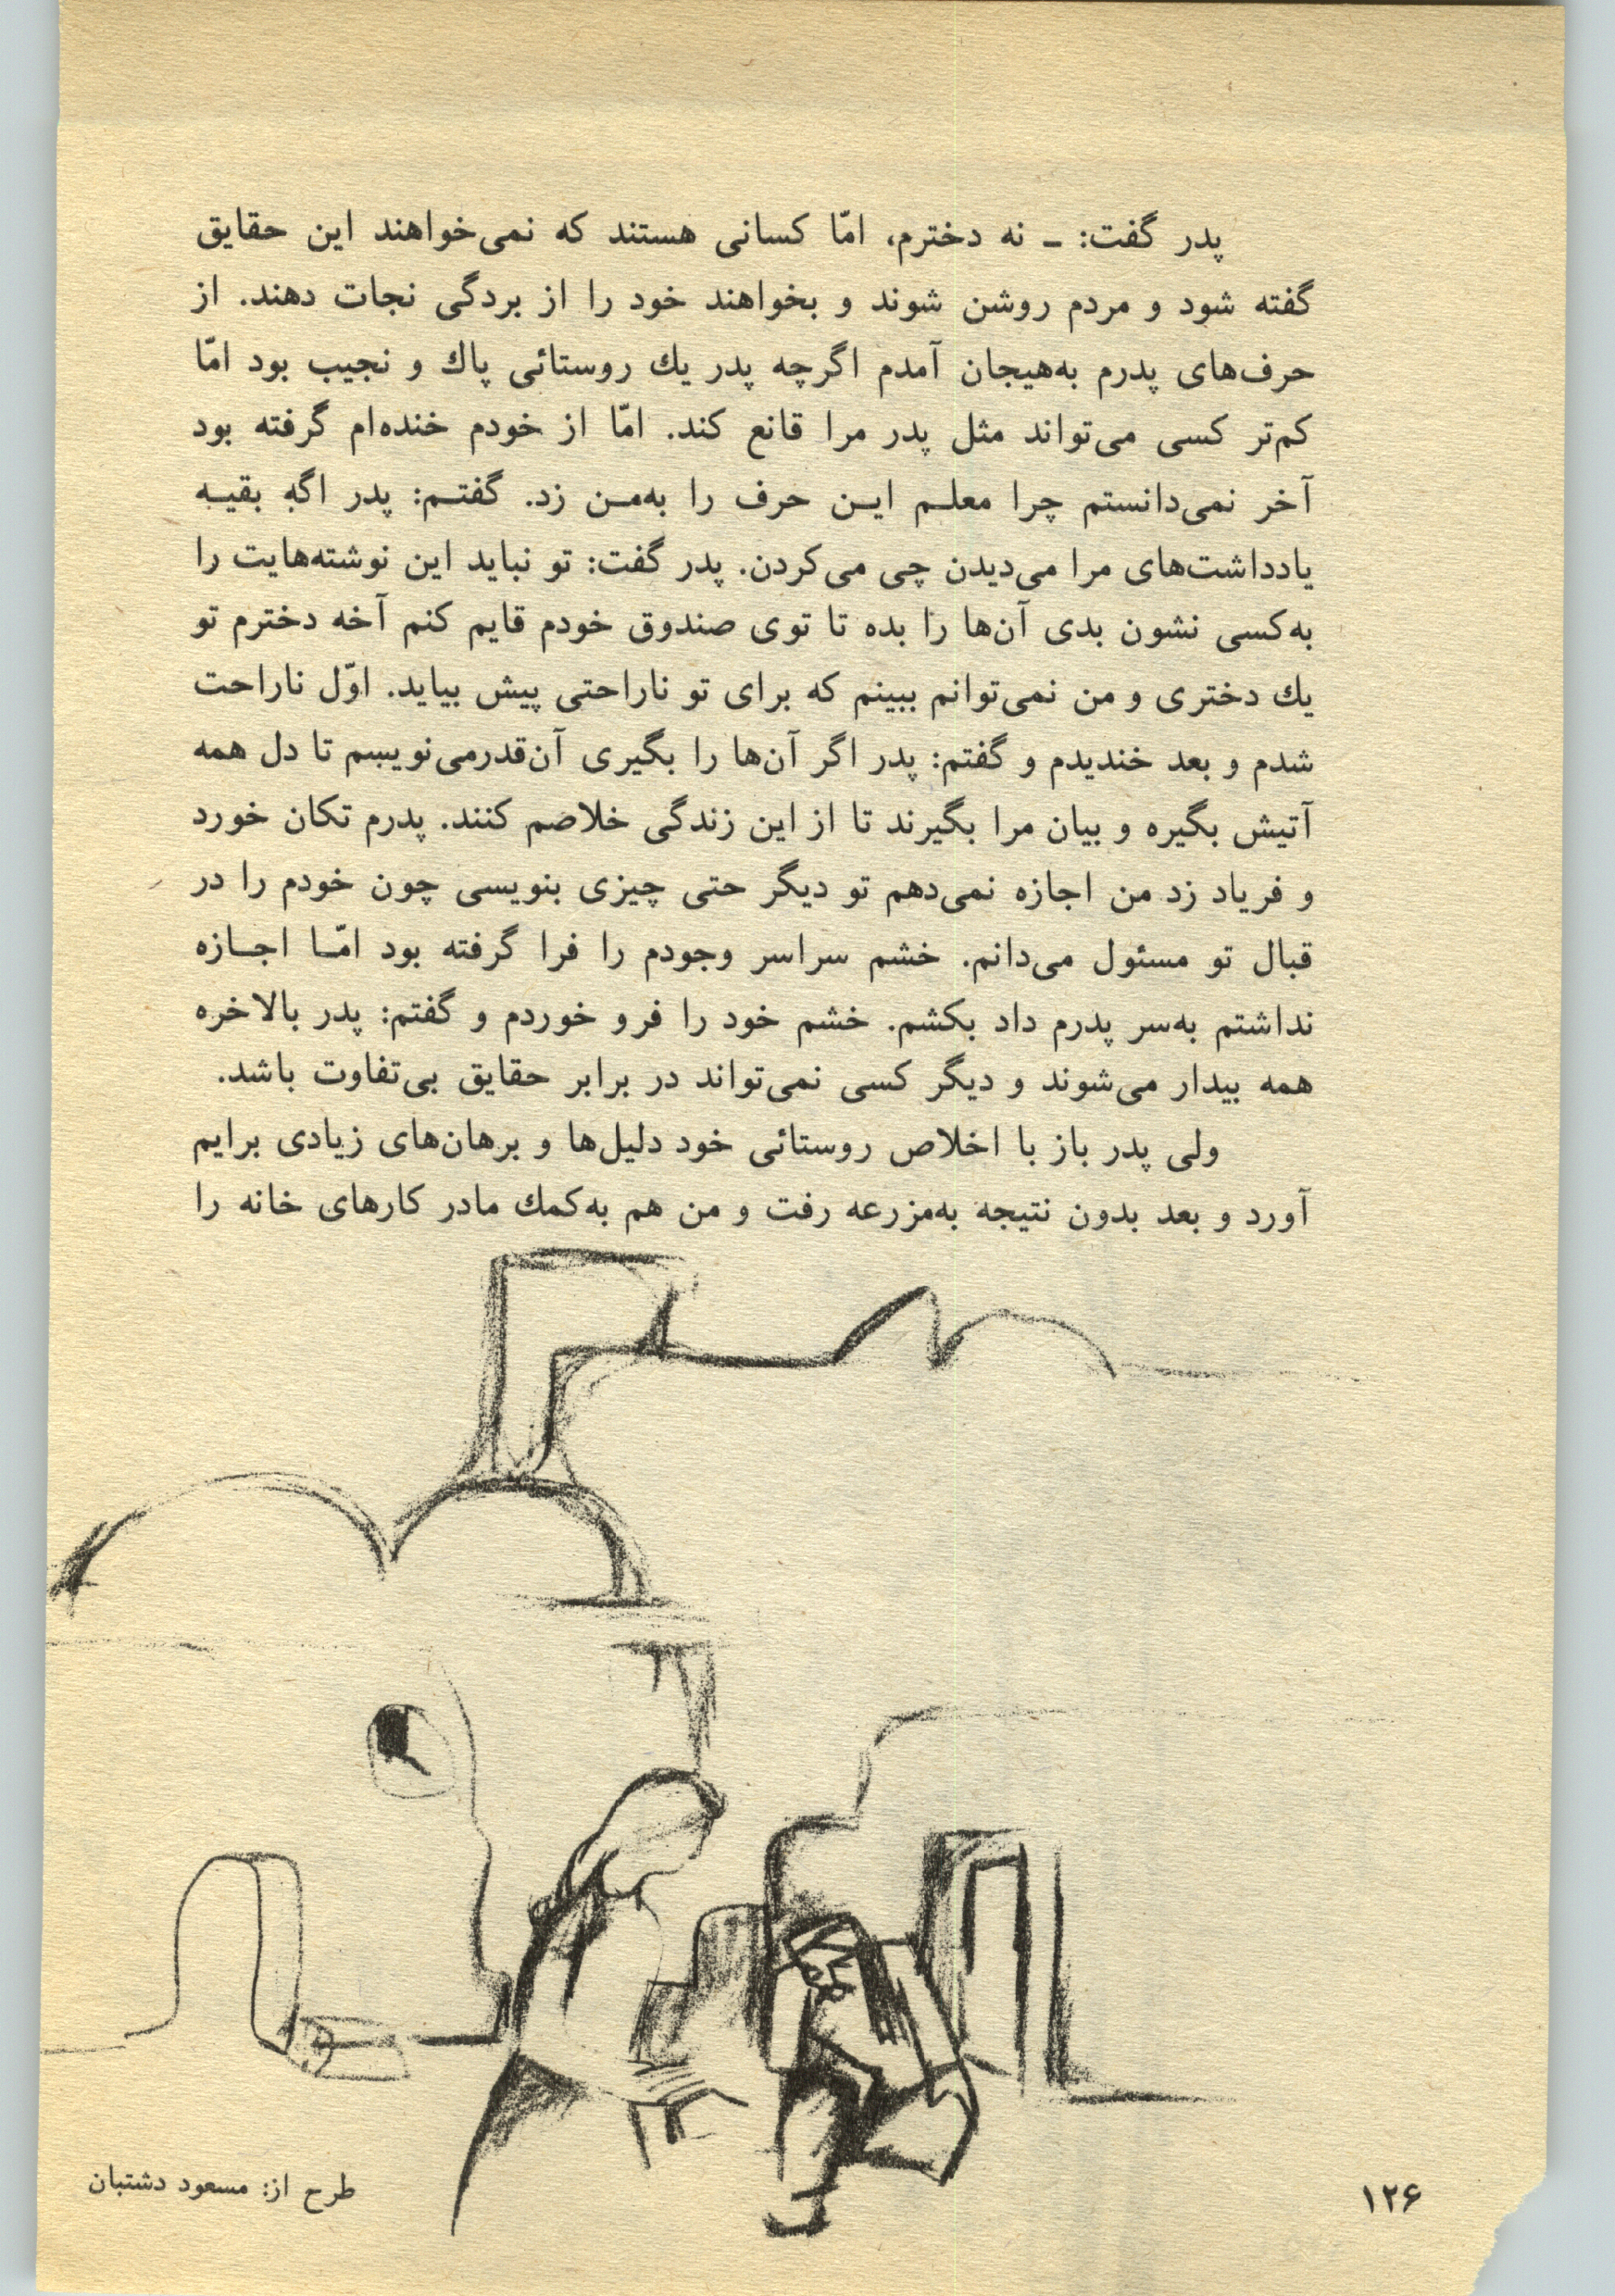 پدر گفت: ـ نه دخترم، امّا کسانی هستند که نمی‌خواهند این حقایق
گفته شود و مردم روشن شوند و بخواهند خود را از بردگی نجات دهند. از
حرف‌های پدرم به‌هیجان آمدم اگرچه پدر یك روستائی پاك و نجیب بود امّا
کم‌تر کسی می‌تواند مثل پدر مرا قانع کند. امّا از خودم خنده‌ام گرفته بود
آخر نمی‌دانستم چرا معلـم ایـن حرف را به‌مـن زد. گفتـم: پدر اگه بقیـه
یادداشت‌های مرا می‌دیدن چی می‌کردن. پدر گفت: تو نباید این نوشته‌هایت را
به‌کسی نشون بدی آن‌ها را بده تا توی صندوق خودم قایم کنم آخه دخترم تو
یك دختری و من نمی‌توانم ببینم که برای تو ناراحتی پیش بیاید. اوّل ناراحت
شدم و بعد خندیدم و گفتم: پدر اگر آن‌ها را بگیری آن‌قدرمی‌نویسم تا دل همه
آتیش بگیره و بیان مرا بگیرند تا از این زندگی خلاصم کنند. پدرم تکان خورد
و فریاد زد من اجازه نمی‌دهم تو دیگر حتی چیزی بنویسی چون خودم را در
قبال تو مسئول می‌دانم. خشم سراسر وجودم را فرا گرفته بود امّـا اجـازه
نداشتم به‌سر پدرم داد بکشم. خشم خود را فرو خوردم و گفتم: پدر بالاخره
همه بیدار می‌شوند و دیگر کسی نمی‌تواند در برابر حقایق بی‌تفاوت باشد.
ولی پدر باز با اخلاص روستائی خود دلیل‌ها و برهان‌های زیادی برایم
آورد و بعد بدون نتیجه به‌مزرعه رفت و من هم به‌کمك مادر کارهای خانه را
طرح از: مسعود دشتبان
۱۲۶